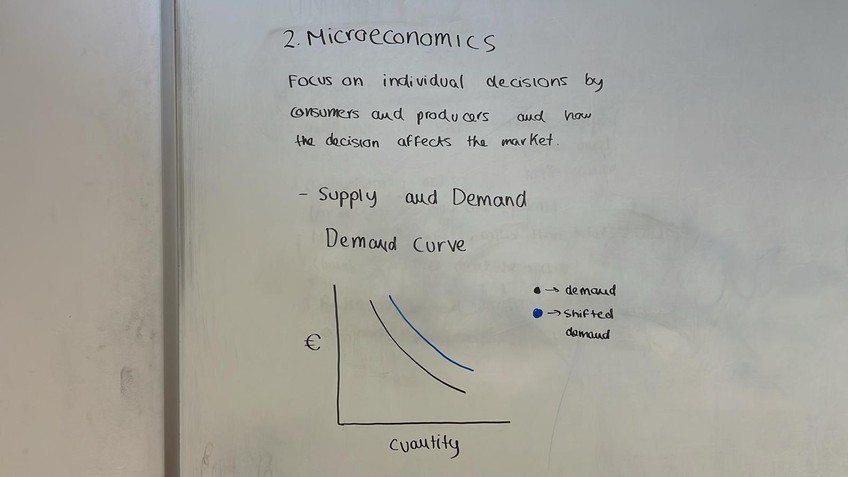 2. Microeconomics
Focus on individual decisions by
consumers and producers and how
the decision affects the market.
- Supply and Demand
Demand Curve
• → demand
• → shifted
demand
€
Cuantity